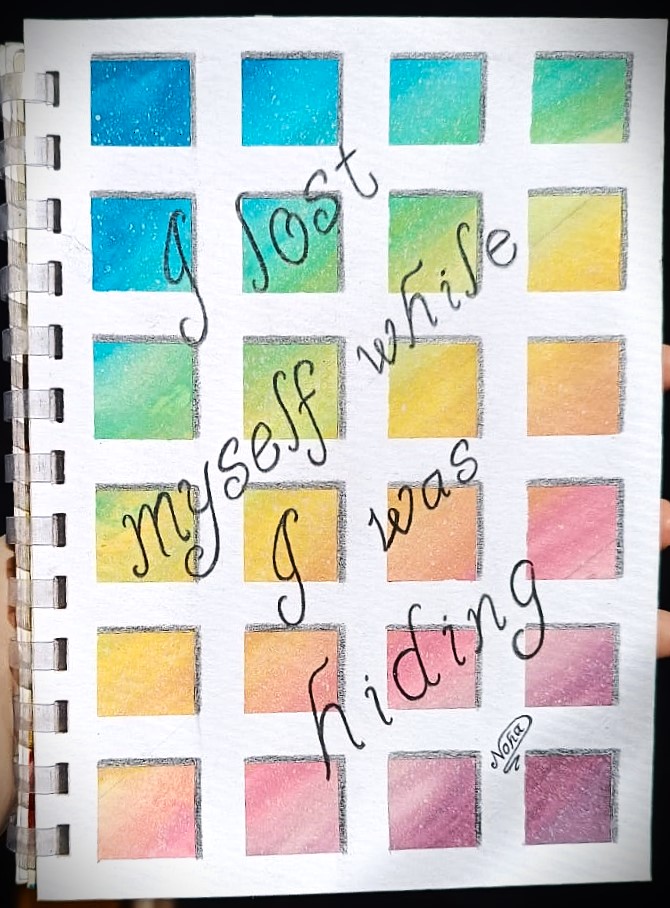 I lost
myself while
I was
hiding
Noha